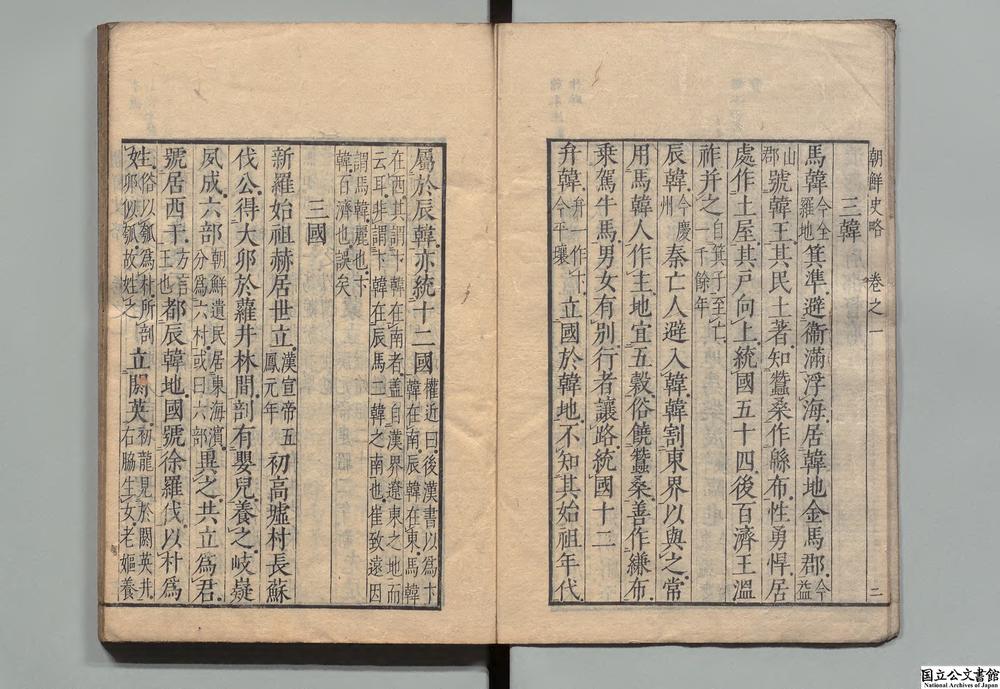 朝鮮史略 卷之一 二
三韓
馬韓今全羅地箕準避衞滿浮海居韓地金馬郡今益
山郡號韓王其民土著知蠶桑作緜布性勇悍居
處作土屋其戶向上統國五十四後百濟王溫
祚并之自箕子至亡一千餘年
辰韓今慶州秦亡人避入韓韓割東界以與之常
用馬韓人作主地宜五穀俗饒蠶桑善作縑布
乘駕牛馬男女有別行者讓路統國十二
弁韓弁一作卞今平壤立國於韓地不知其始祖年代
屬於辰韓亦統十二國權近曰後漢書以爲卞韓在南辰韓在東馬韓
在西其謂卞韓在南者盖自漢界遼東之地而云耳非謂卞韓在辰馬二韓之南也崔致遠因
謂馬韓麗也卞韓百濟也誤矣
三國
新羅始祖赫居世立漢宣帝五鳳元年初高墟村長蘇
伐公得大卵於蘿井林間剖有嬰兒養之岐嶷
夙成六部朝鮮遺民居東海濵分爲六村或曰六部異之共立爲君
號居西干方言王也都辰韓地國號徐羅伐以朴爲
姓俗以瓠爲朴所剖卵似瓠故姓之立閼英初龍見於閼英井右脇生女老嫗養
国立公文書館
National Archives of Japan